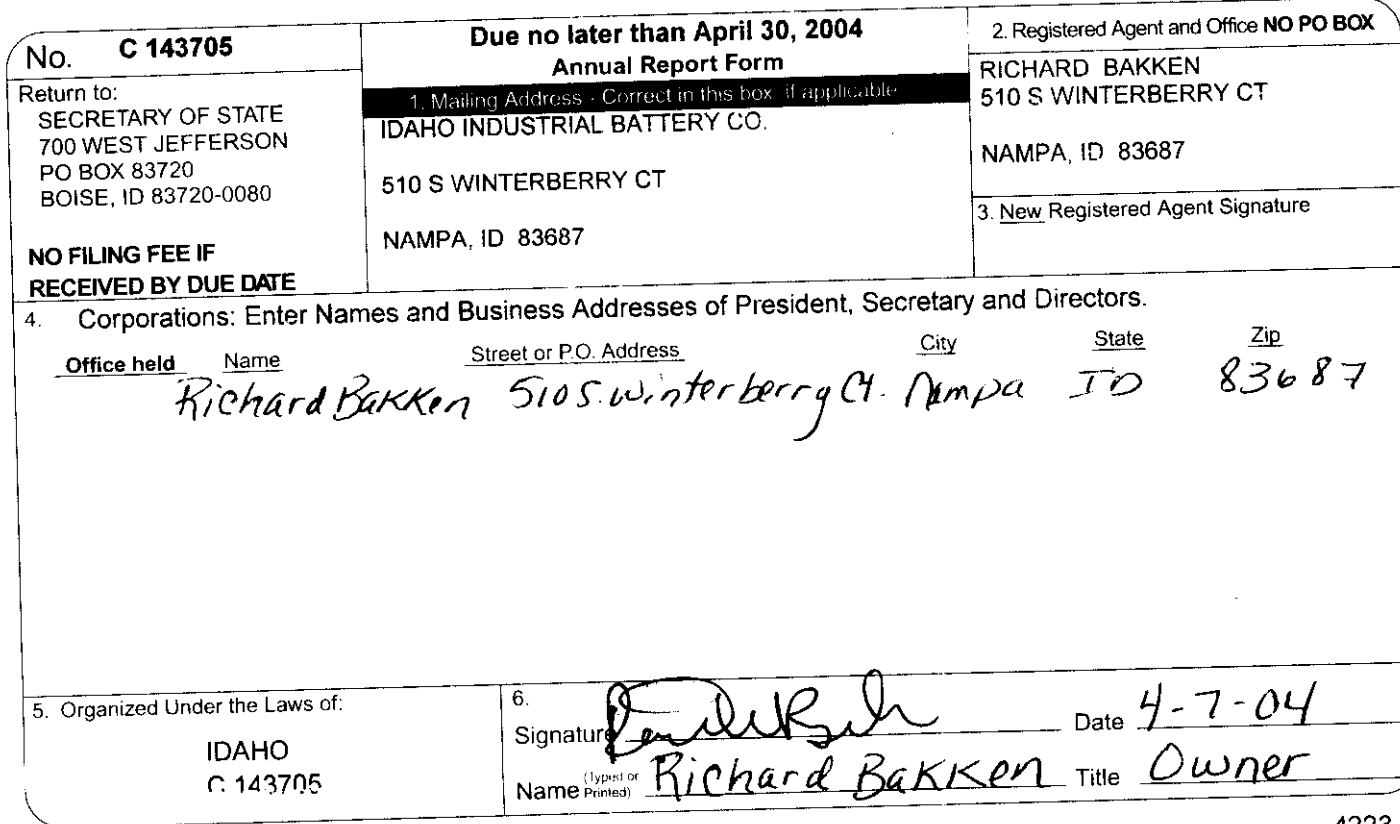 No. C 143705
Return to:
SECRETARY OF STATE
700 WEST JEFFERSON
PO BOX 83720
BOISE, ID 83720-0080
NO FILING FEE IF
RECEIVED BY DUE DATE
Due no later than April 30, 2004
Annual Report Form
1. Mailing Address - Correct in this box if applicable
IDAHO INDUSTRIAL BATTERY CO.
510 S WINTERBERRY CT
NAMPA, ID 83687
2. Registered Agent and Office NO PO BOX
RICHARD BAKKEN
510 S WINTERBERRY CT
NAMPA, ID 83687
3. New Registered Agent Signature
4. Corporations: Enter Names and Business Addresses of President, Secretary and Directors.
Office held Name Street or P.O. Address City State Zip
Richard Bakken 510 S. Winterberry Ct. Nampa ID 83687
5. Organized Under the Laws of:
IDAHO
C 143705
6.
Signature Date 4-7-04
Name (Typed or Printed) Richard Bakken Title Owner